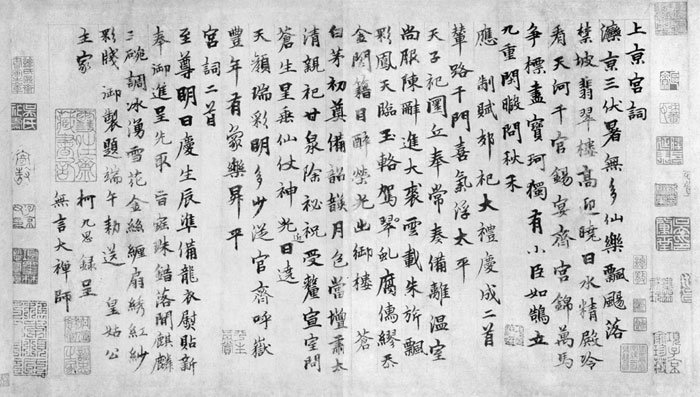 上京宮詞
灤京三伏暑無多仙樂飄颻落
禁坡翡翠樓高迎曉日水精殿冷
看天河千官錫宴齊宮錦萬馬
爭標盡寶珂獨有小臣如鵠立
九重閒暇問秋禾
應 制賦郊祀大禮慶成二首
輦路千門喜氣浮太平
天子祀圜丘奉常奏備離溫室
尚服陳辭進大裘雲載朱旂飄
影鳳天臨玉輅駕翠虬腐儒繆忝
金閨籍目醉榮光出御樓 蒼
白茅初奠備韶韺月色當壇肅太
清親祀甘泉除祕祝受釐宣室問
蒼生星垂仙仗神光近日逺
天顏瑞彩明多少從官齊呼嶽
豐年有象樂昇平
宮詞二首
至尊明日慶生辰準備龍衣熨貼新
奉御進呈先取 旨珠錯落間麒麟
三碗調冰湧雪花金絲纏扇綉紅紗
彩牋御製題端午勅送 皇姑公
主家
柯九思錄呈
無言大禪師